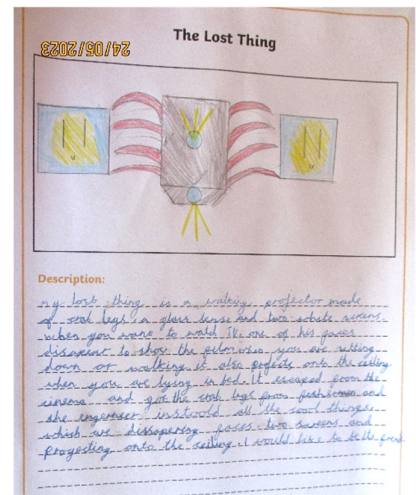 The Lost Thing
24/05/2023
Description:
my lost thing is a walking projector made
of crab legs, a glass lense and two white
when you want to watch TV, one of his faces
to show the film when you are sitting
down or walking it also projests onto the ceiling
when you are lying in bed. It escaped from the
cinema and got the crab legs from and
the engerneer all the cool things
which are dissapering faces two screens and
progesting onto the ceiling. I would like to be the